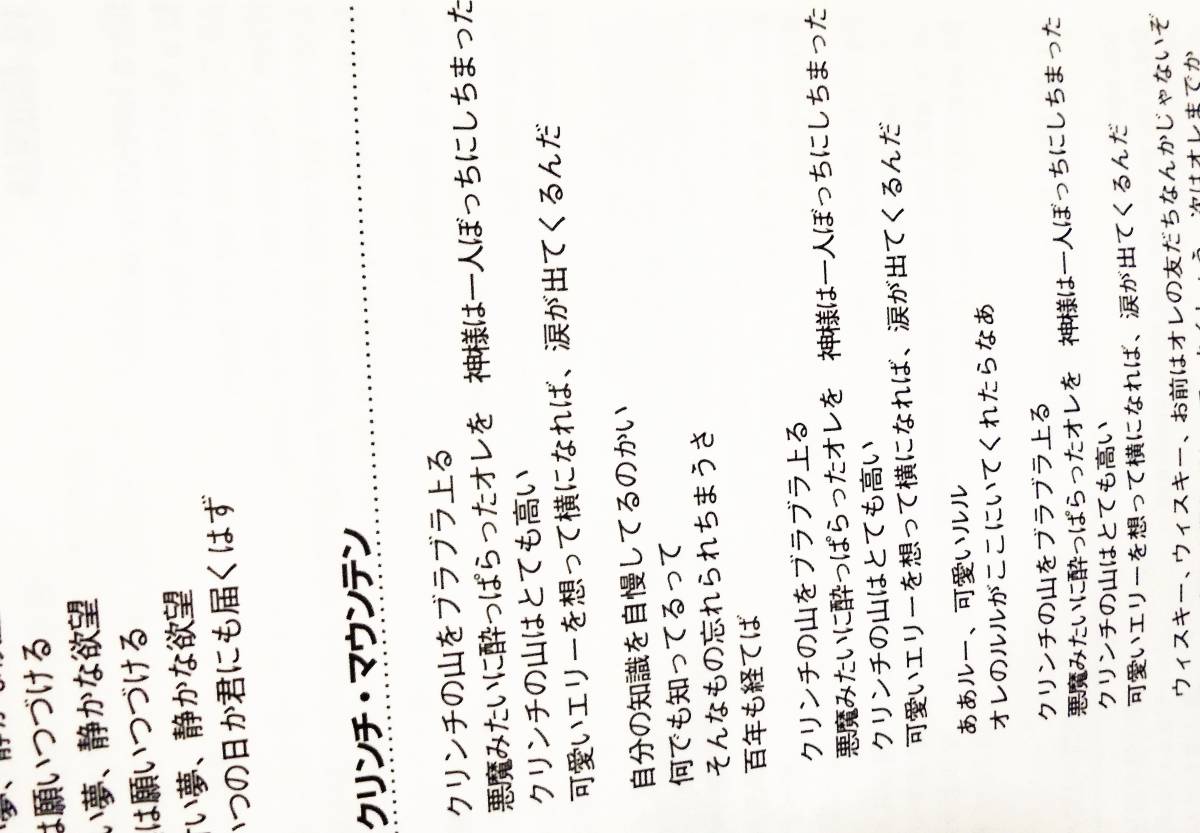 は願いつづける
い夢、静かな欲望
は願いつづける
い夢、静かな欲望
いつの日か君にも届くはず
クリンチ・マウンテン
クリンチの山をブラブラ上る
悪魔みたいに酔っぱらったオレを　神様は一人ぼっちにしちまった
クリンチの山はとても高い
可愛いエリーを想って横になれば、涙が出てくるんだ
自分の知識を自慢してるのかい
何でも知ってるって
そんなもの忘れられちまうさ
百年も経てば
クリンチの山をブラブラ上る
悪魔みたいに酔っぱらったオレを　神様は一人ぼっちにしちまった
クリンチの山はとても高い
可愛いエリーを想って横になれば、涙が出てくるんだ
ああルー、可愛いルル
オレのルルがここにいてくれたらなぁ
クリンチの山をブラブラ上る
悪魔みたいに酔っぱらったオレを　神様は一人ぼっちにしちまった
クリンチの山はとても高い
可愛いエリーを想って横になれば、涙が出てくるんだ
ウィスキー、ウィスキー、お前はオレの友だちなんかじゃないぞ
次はオレまでか